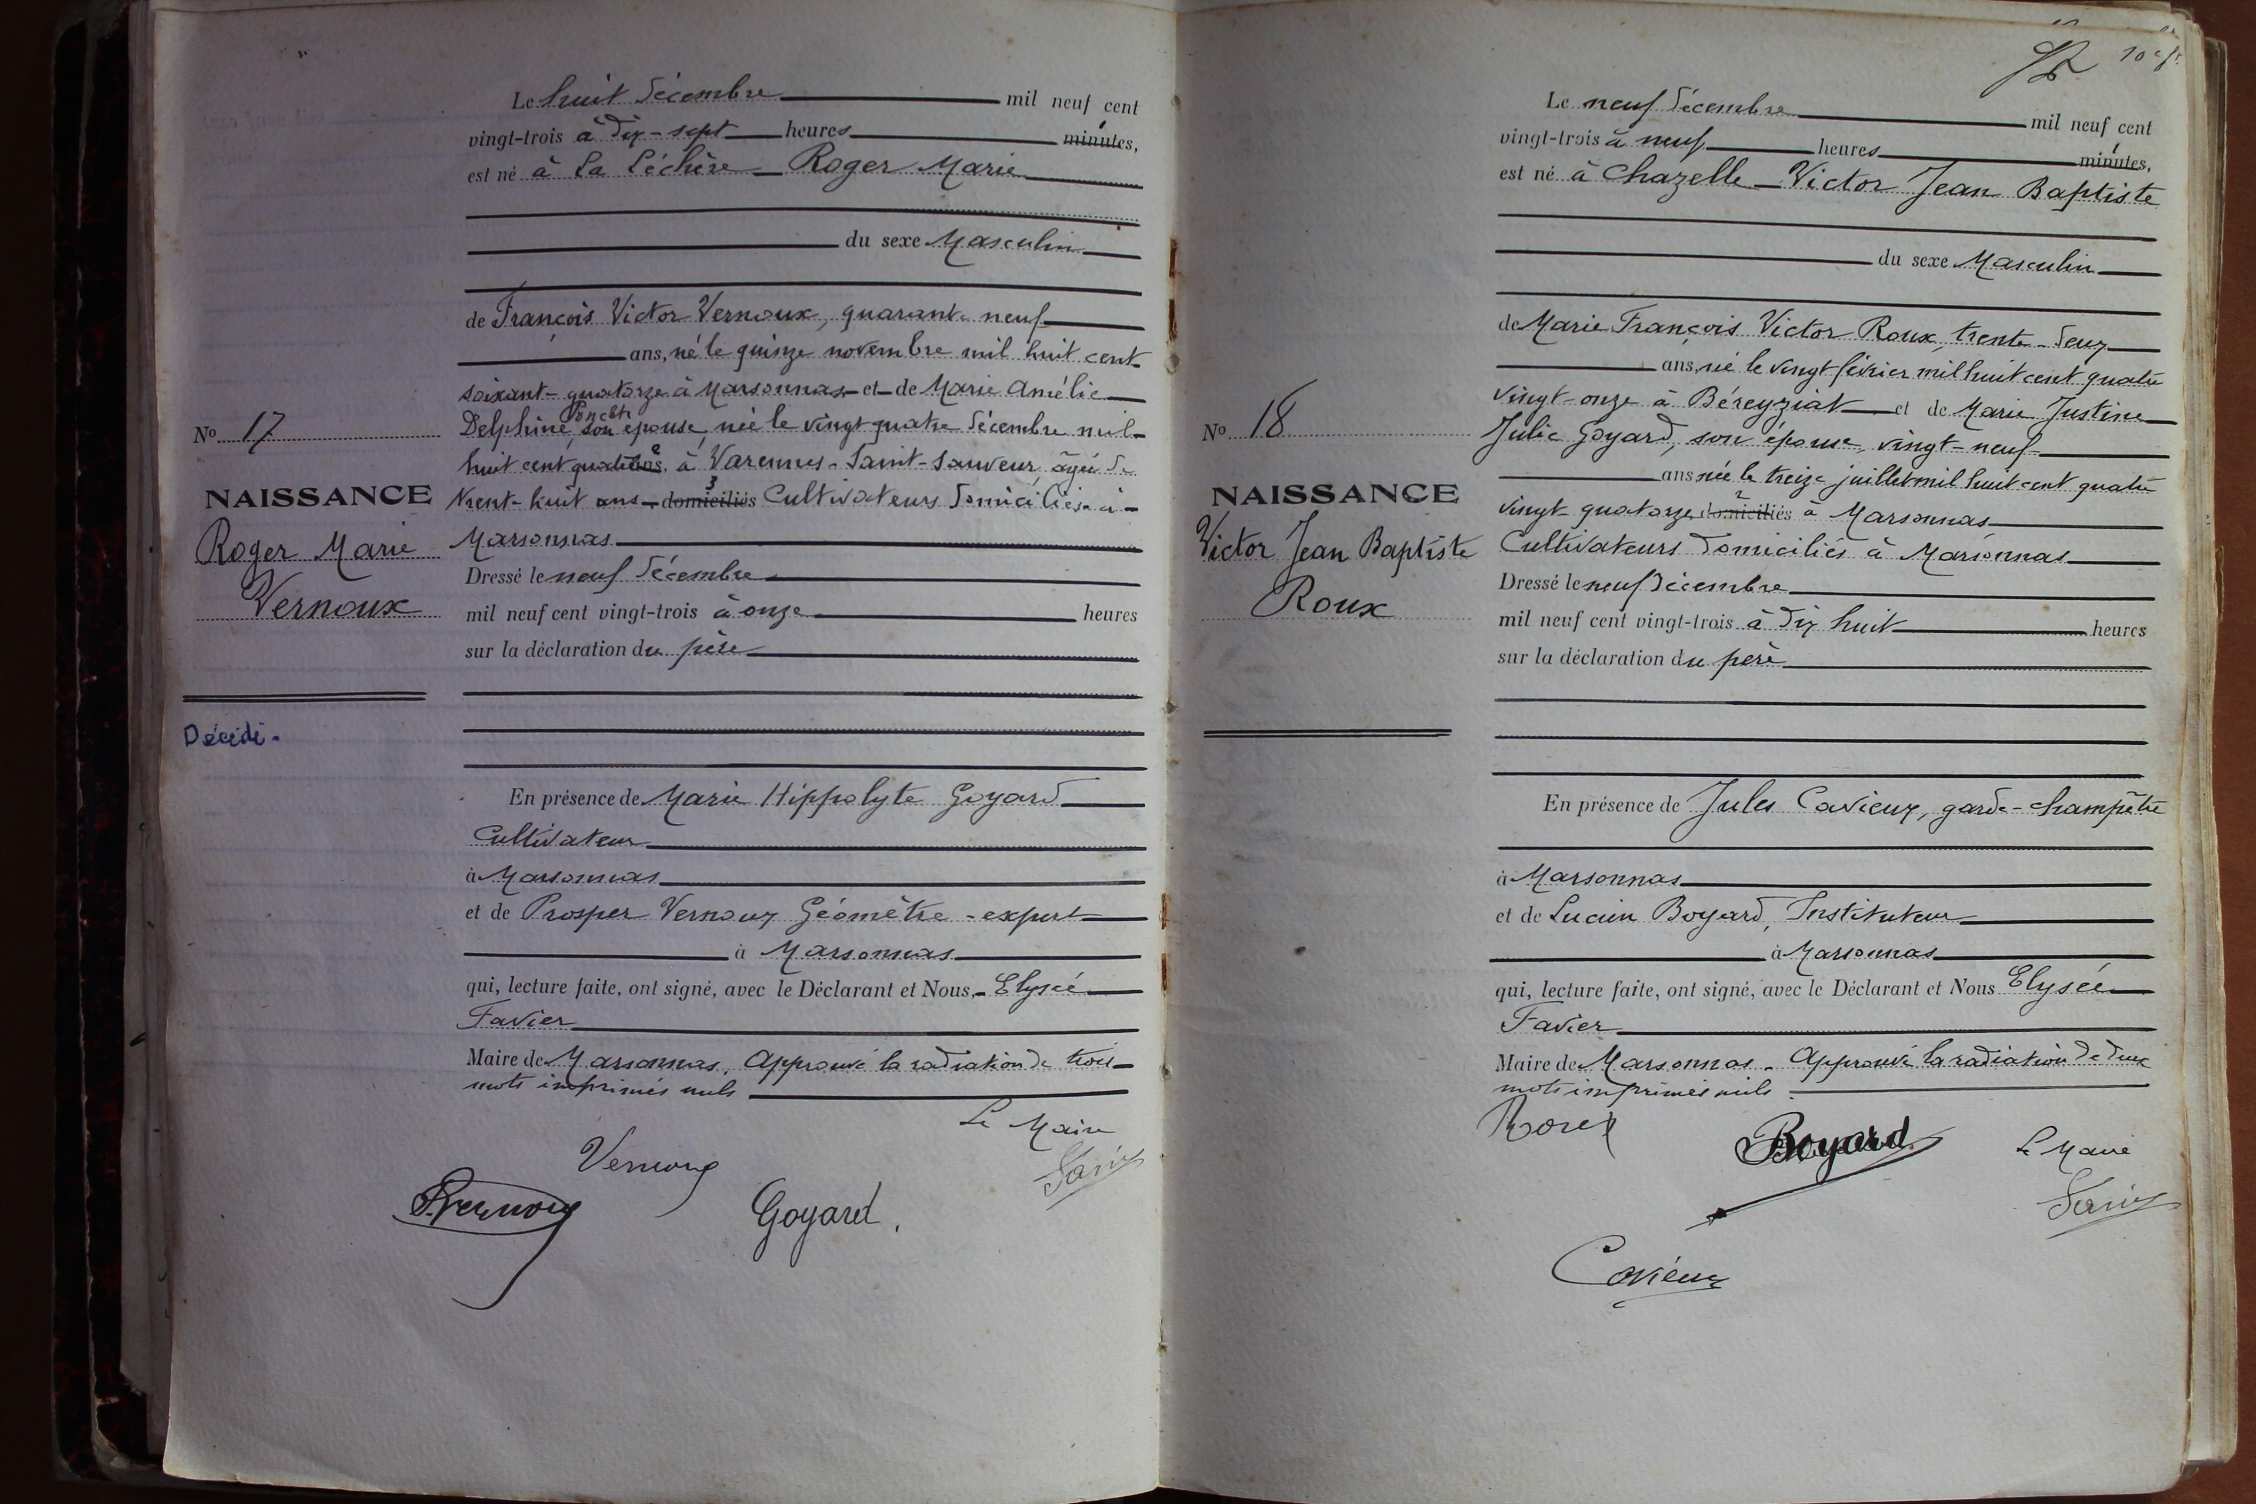 Le huit décembre mil neuf cent
vingt-trois à dix-sept heures minutes,
est né à La Léchère Roger Marie
du sexe Masculin
de François Victor Vernoux, quarante neuf
ans, né le quinze novembre mil huit cent
soixante-quatorze à Marsonnas et de Marie Amélie
Poncet
Delphine, son épouse, née le vingt quatre décembre mil
huit cent à Varennes-Saint-Sauveur, âgée de
trent-huit ans domiciliés Cultivateurs domiciliés à
Marsonnas
Dressé le neuf décembre
mil neuf cent vingt-trois à onze heures
sur la déclaration du père
En présence de Marie Hippolyte Goyard
Cultivateur
à Marsonnas
et de Prosper Vernoux Géomètre-expert
à Marsonnas
qui, lecture faite, ont signé, avec le Déclarant et Nous, Elysée
Favier
Maire de Marsonnas. Approuvé la radiation de trois
mots imprimés nuls
Le Maire
Vernoux
Favier
PVernoux
Goyard.
No 17
NAISSANCE
Roger Marie
Vernoux
Décédé.
10
Le neuf décembre mil neuf cent
vingt-trois à neuf heures minutes,
est né à Chazelle Victor Jean Baptiste
du sexe Masculin
de Marie François Victor Roux, trente-deux
ans, né le vingt février mil huit cent quatre
vingt-onze à Béreyziat et de Marie Justine
Julie Goyard, son épouse, vingt-neuf
ans née le treize juillet mil huit cent quatre
vingt quatorze domiciliés à Marsonnas
Cultivateurs domiciliés à Marsonnas
Dressé le neuf décembre
mil neuf cent vingt-trois à dix huit heures
sur la déclaration du père
En présence de Jules Cavieux, garde-champêtre
à Marsonnas
et de Lucien Boyard, Instituteur
à Marsonnas
qui, lecture faite, ont signé, avec le Déclarant et Nous Elysée
Favier
Maire de Marsonnas. Approuvé la radiation de deux
mots imprimés nuls
Roux
Boyard
Le Maire
Favier
Cavieux
No 18
NAISSANCE
Victor Jean Baptiste
Roux